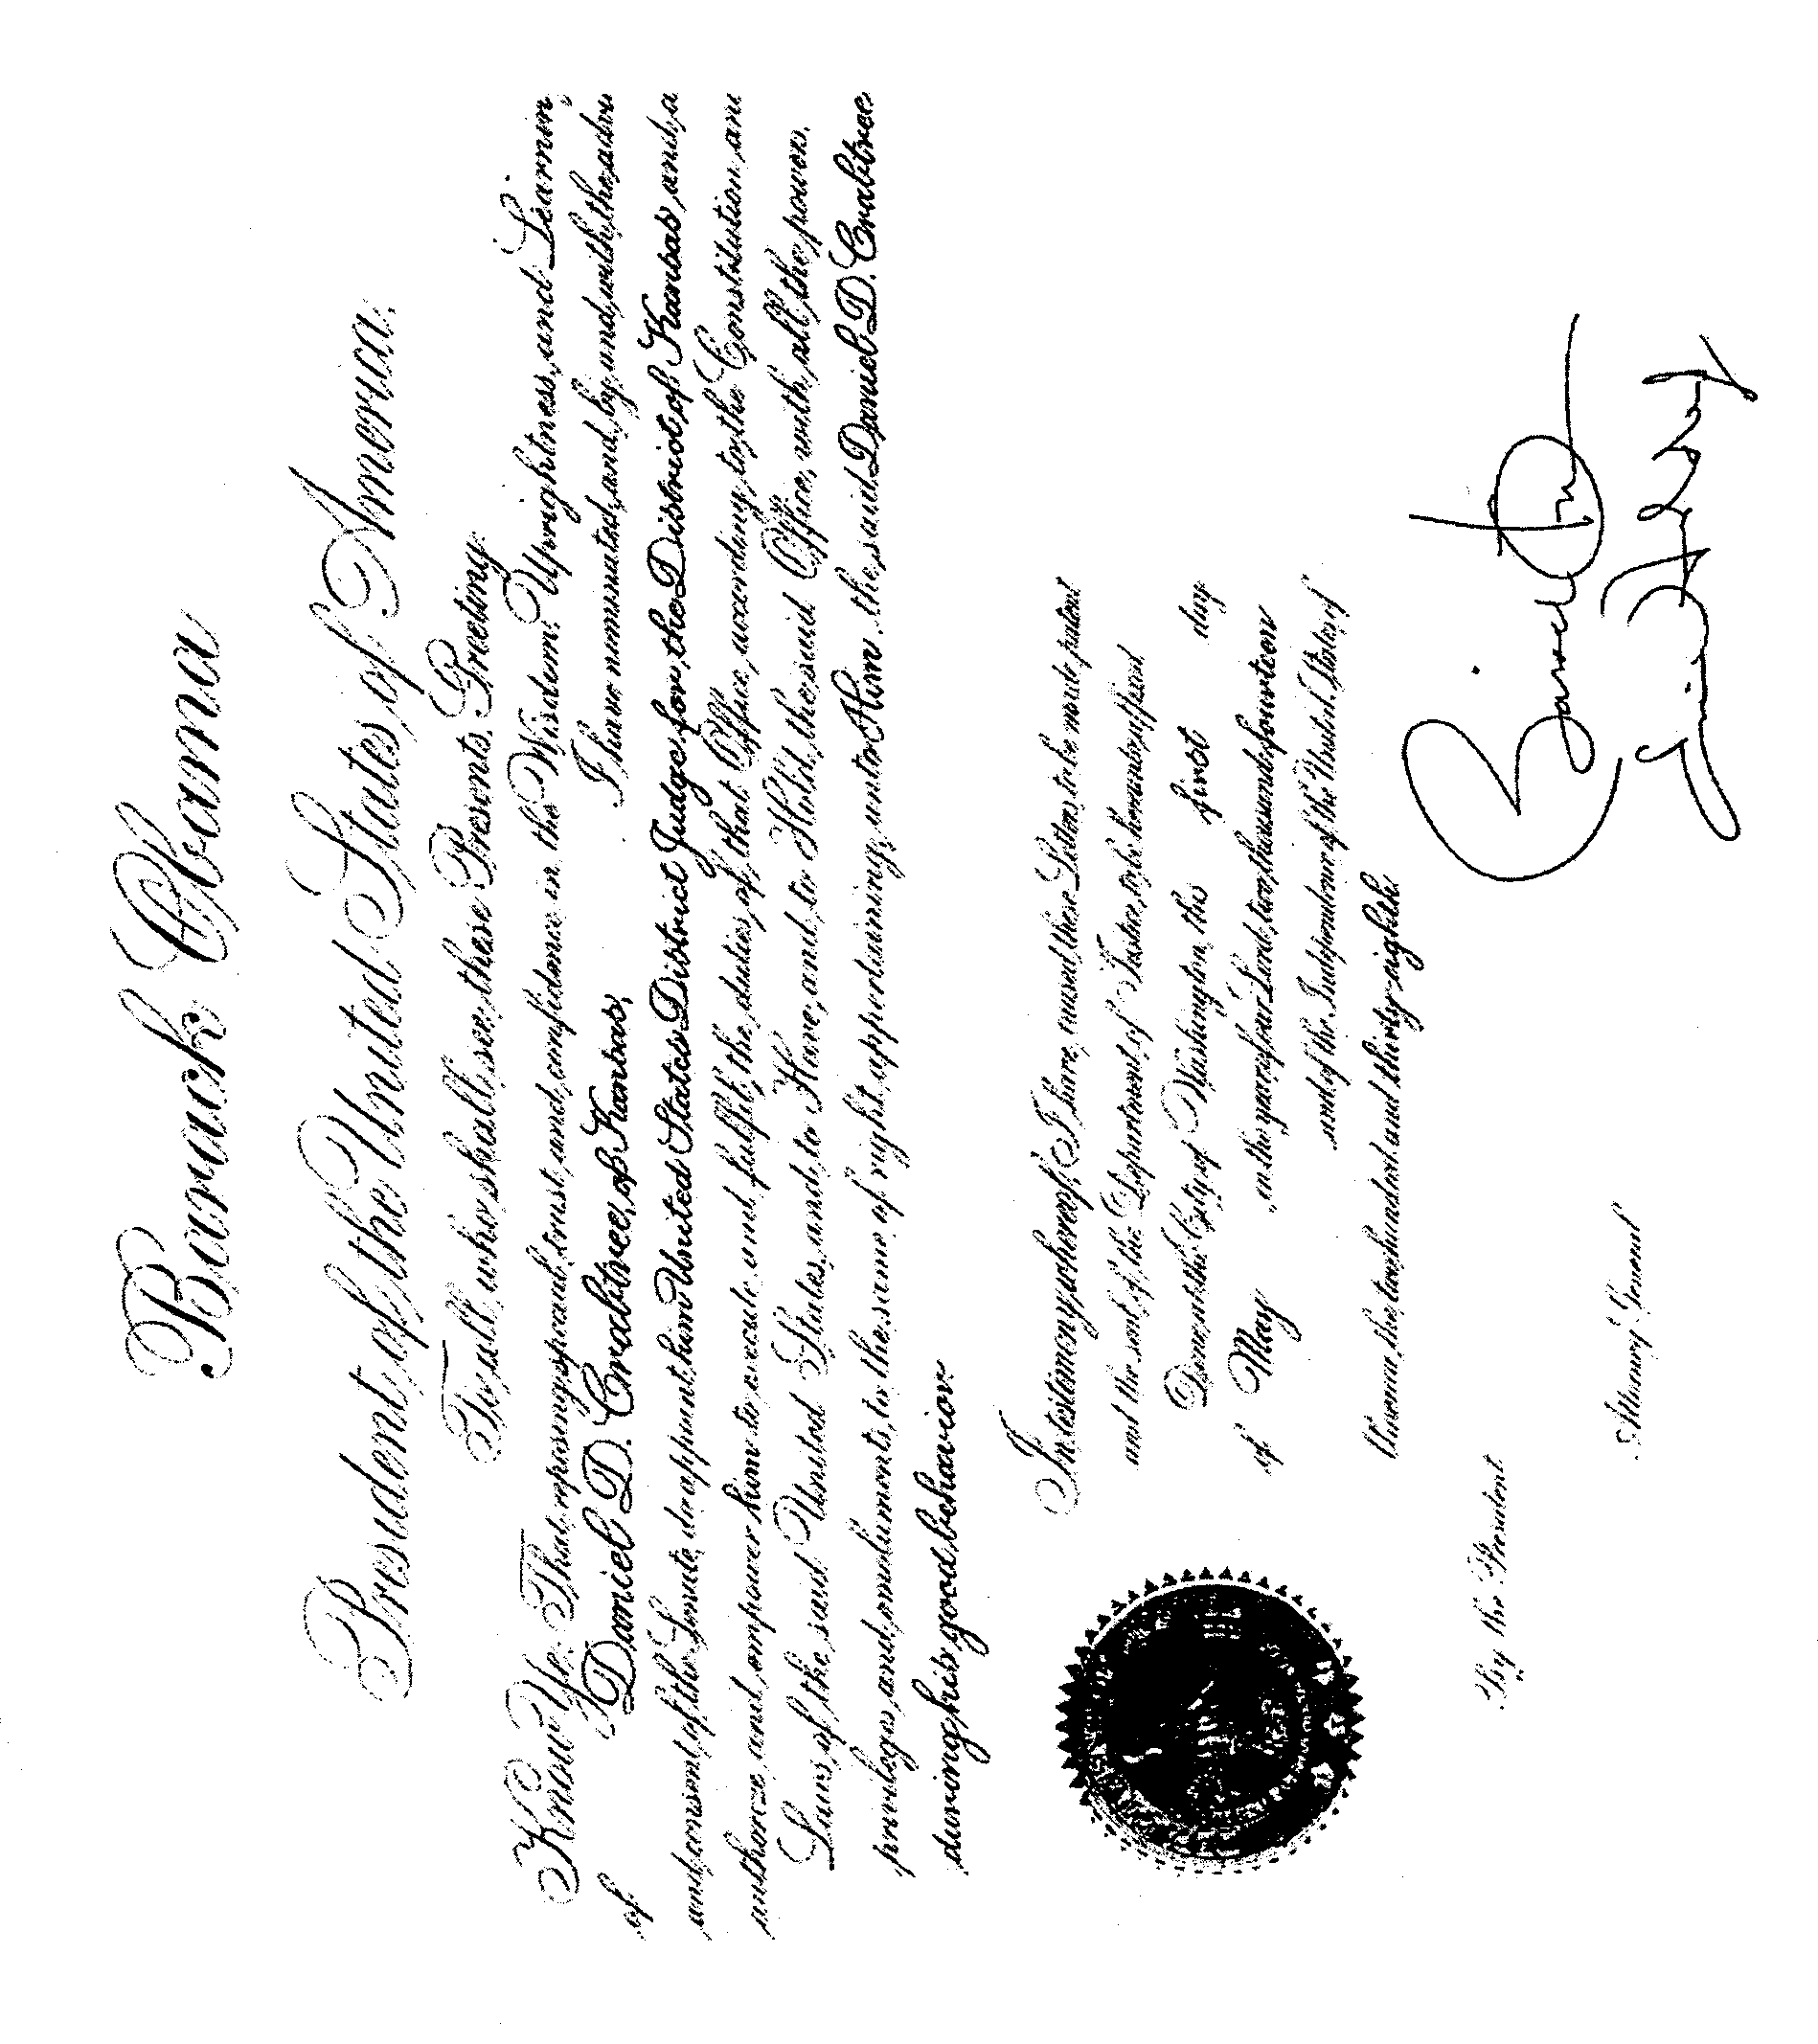 Barack Obama
President of the United States of America.
To all who shall see these Presents, Greeting:
Know Ye: That reposing special trust and confidence in the Wisdom, Uprightness, and Learnin
of Daniel D. Crabtree, of Kansas, I have nominated, and, by and with the advi
and consent of the Senate, do appoint him United States District Judge for the District of Kansas, and a
authorize and empower him to execute and fulfil the duties of that Office according to the Constitution an
Laws of the said United States, and to Have and to Hold the said Office, with all the powers,
privileges and emoluments to the same of right appertaining, unto Him, the said Daniel D. Crabtree
during his good behavior
In testimony whereof, I have caused these Letters to be made patent
and the seal of the Department of Justice, to be hereunto affixed
Done at the City of Washington, the first day
of May in the year of our Lord, two thousand fourteen
and of the Independence of the United States of
America, the two hundred and thirty-eighth
Barack Obama
By the President
Attorney General